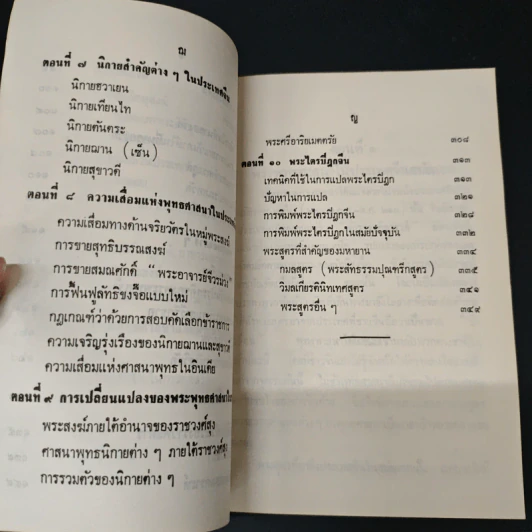 ฌ
ตอนที่ ๗ นิกายสำคัญต่าง ๆ ในประเทศจีน
นิกายฮวาเยน
นิกายเทียนไท
นิกายตันตระ
นิกายฌาน (เซ็น)
นิกายสุขาวดี
ตอนที่ ๘ ความเสื่อมแห่งพุทธศาสนาในประเทศ
ความเสื่อมทางด้านจริยวัตรในหมู่พระสงฆ์
การขายสุทธิบรรณสงฆ์
การขายสมณศักดิ์ “พระอาจารย์จีวรม่วง”
การฟื้นฟูลัทธิขงจื๊อแบบใหม่
กฎเกณฑ์ว่าด้วยการสอบคัดเลือกข้าราชการ
ความเจริญรุ่งเรืองของนิกายฌานและสุขาวดี
ความเสื่อมแห่งศาสนาพุทธในอินเดีย
ตอนที่ ๙ การเปลี่ยนแปลงของพระพุทธศาสนาใน
พระสงฆ์ภายใต้อำนาจของราชวงศ์สุง
ศาสนาพุทธนิกายต่าง ๆ ภายใต้ราชวงศ์สุง
การรวมตัวของนิกายต่าง ๆ
ญ
พระศรีอาริยเมตตรัย ๓๐๘
ตอนที่ ๑๐ พระไตรปิฎกจีน ๓๑๓
เทคนิคที่ใช้ในการแปลพระไตรปิฎก ๓๑๓
ปัญหาในการแปล ๓๒๑
การพิมพ์พระไตรปิฎกจีน ๓๒๘
การพิมพ์พระไตรปิฎกในสมัยปัจจุบัน ๓๓๒
พระสูตรที่สำคัญของมหายาน ๓๓๔
กมลสูตร (พระสัทธรรมปุณฑรีกสูตร) ๓๓๕
วิมลเกียรตินิทเทศสูตร ๓๔๑
พระสูตรอื่น ๆ ๓๔๙